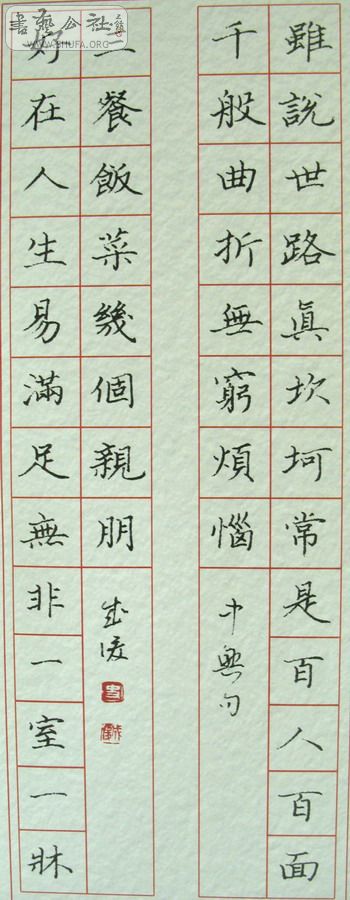 雖說世路眞坎坷常是百人百面
千般曲折無窮煩惱
中興句
好在人生易滿足無非一室一牀
三餐飯菜幾個親朋
書藝公社
WWW.SHUFA.ORG